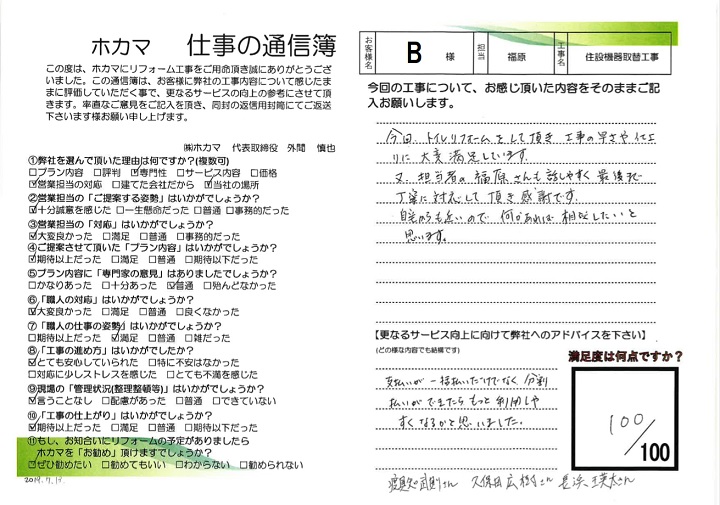 ホカマ 仕事の通信簿
この度は、ホカマにリフォーム工事をご用命頂き誠にありがとうござ
いました。この通信簿は、お客様に弊社の工事内容について感じたま
まに評価していただく事で、更なるサービスの向上の参考にさせて頂
きます。率直なご意見をご記入を頂き、同封の返信用封筒にてご返送
下さいます様お願い申し上げます。
㈱ホカマ 代表取締役 外間 慎也
①弊社を選んで頂いた理由は何ですか?(複数可)
□プラン内容 □評判 ☑専門性 □サービス内容 □価格
☑営業担当の対応 □建てた会社だから ☑当社の場所
②営業担当の「ご提案する姿勢」はいかがでしょうか?
☑十分誠意を感じた □一生懸命だった □普通 □事務的だった
③営業担当の「対応」はいかがでしょうか?
☑大変良かった □満足 □普通 □事務的だった
④ご提案させて頂いた「プラン内容」はいかがでしょうか?
☑期待以上だった □満足 □普通 □期待以下だった
⑤プラン内容に「専門家の意見」はありましたでしょうか?
□かなりあった □十分あった ☑普通 □殆んどなかった
⑥「職人の対応」はいかがでしょうか?
☑大変良かった □満足 □普通 □良くなかった
⑦「職人の仕事の姿勢」はいかがでしょうか?
□期待以上だった ☑満足 □普通 □雑だった
⑧「工事の進め方」はいかがでしたか?
☑とても安心していられた □特に不安はなかった
□対応に少しストレスを感じた □とても不満を感じた
⑨現場の「管理状況(整理整頓等)」はいかがでしょうか?
☑言うことなし □配慮があった □普通 □できていない
⑩「工事の仕上がり」はいかがでしょうか?
☑期待以上だった □満足 □普通 □期待以下だった
⑪もし、お知合いにリフォームの予定がありましたら
ホカマを「お勧め」頂けますでしょうか?
☑ぜひ勧めたい □勧めてもいい □わからない □勧められない
お客様名 B 様 担当 福原 工事名 住設機器取替工事
今回の工事について、お感じ頂いた内容をそのままご記
入お願いします。
今回、トイレリフォームをして頂き 工事の早さや仕上
りに大変満足しています。
又、担当者の福原さんも話しやすく最後まで
丁寧に対応して頂き感謝です。
自宅からも近いので 何かあれば相談したいと
思います。
【更なるサービス向上に向けて弊社へのアドバイスを下さい】
(どの様な内容でも結構です)
満足度は何点ですか?
支払いが一括払いだけでなく 分割
払いができたらもっと利用しや
すくなるかと思いました。
100/100